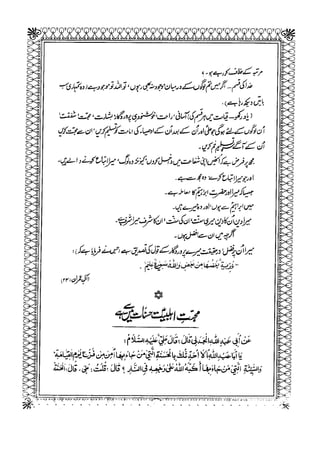 مرتبہ کے خلاف کر رہے ہو۔ ؟
خدا کی قسم۔۔ اگر میں تم لوگوں کے درمیان موجود نہ بھی رہوں، تو اللہ تو موجود ہے (وہ تمہاری سب
باتیں دیکھ رہا ہے)۔
(یاد رکھو۔ قیامت میں ہر قسم کی آسانی، راحت، خوشنودی پروردگار، بشارت، محبت، شفقت
اُن لوگوں کے لئے ہوگی جو علیؑ اور اُن کے بعد اُن کے اوصیاء کی امامت کو تسلیم کریں، ان سے محبت کریں
اُن کے آگے سر تسلیم خم کریں۔
مجھ پر فرض ہے کہ انھیں اپنی شفاعت میں داخل کروں کیونکہ وہ لوگ، میرا اتباع کرنے والے ہیں۔
اور جو میرا اتباع کرے وہ مجھ سے ہے۔
جیسا کہ میرا اور حضرت ابراہیمؑ کا معاملہ ہے۔
میں ابراہیمؑ سے ہوں اور وہ میرے ہیں۔
میرا دین اُن کا دین، میری سنت اُن کی سنت، اُن کا شرف میرا شرف ہے۔
اگرچہ میں ان سے افضل ہوں۔
میرا اُن پر فضل، درحقیقت میرے پروردگار کے قول کی تصدیق ہے (جس نے فرمایا ہے کہ):
"ذُرِّيَّةً بَعْضُهَا مِنْ بَعْضٍ وَاللَّهُ سَمِيعٌ عَلِيمٌ۔
(آل عمران: ۳۴)
محبت اہلبیتؑ حسنات میں ہے
عَنْ أَبِي عَبْدِ اللهِ الْجَدَلِيِّ قَالَ: قَالَ عَلِيٌّ عَلَيْهِ السَّلَامُ:
يَا أَبَا عَبْدِ اللهِ! أَلَا أُحَدِّثُكَ بِالْحَسَنَةِ الَّتِي مَنْ جَاءَ بِهَا أَمِنَ مِنْ فَزَعِ يَوْمِ الْقِيَامَةِ،
وَالسَّيِّئَةِ الَّتِي مَنْ جَاءَ بِهَا أَكَبَّهُ اللهُ عَلَى وَجْهِهِ فِي النَّارِ؟ قَالَ: قُلْتُ: بَلَى، قَالَ: الْحَسَنَةُ